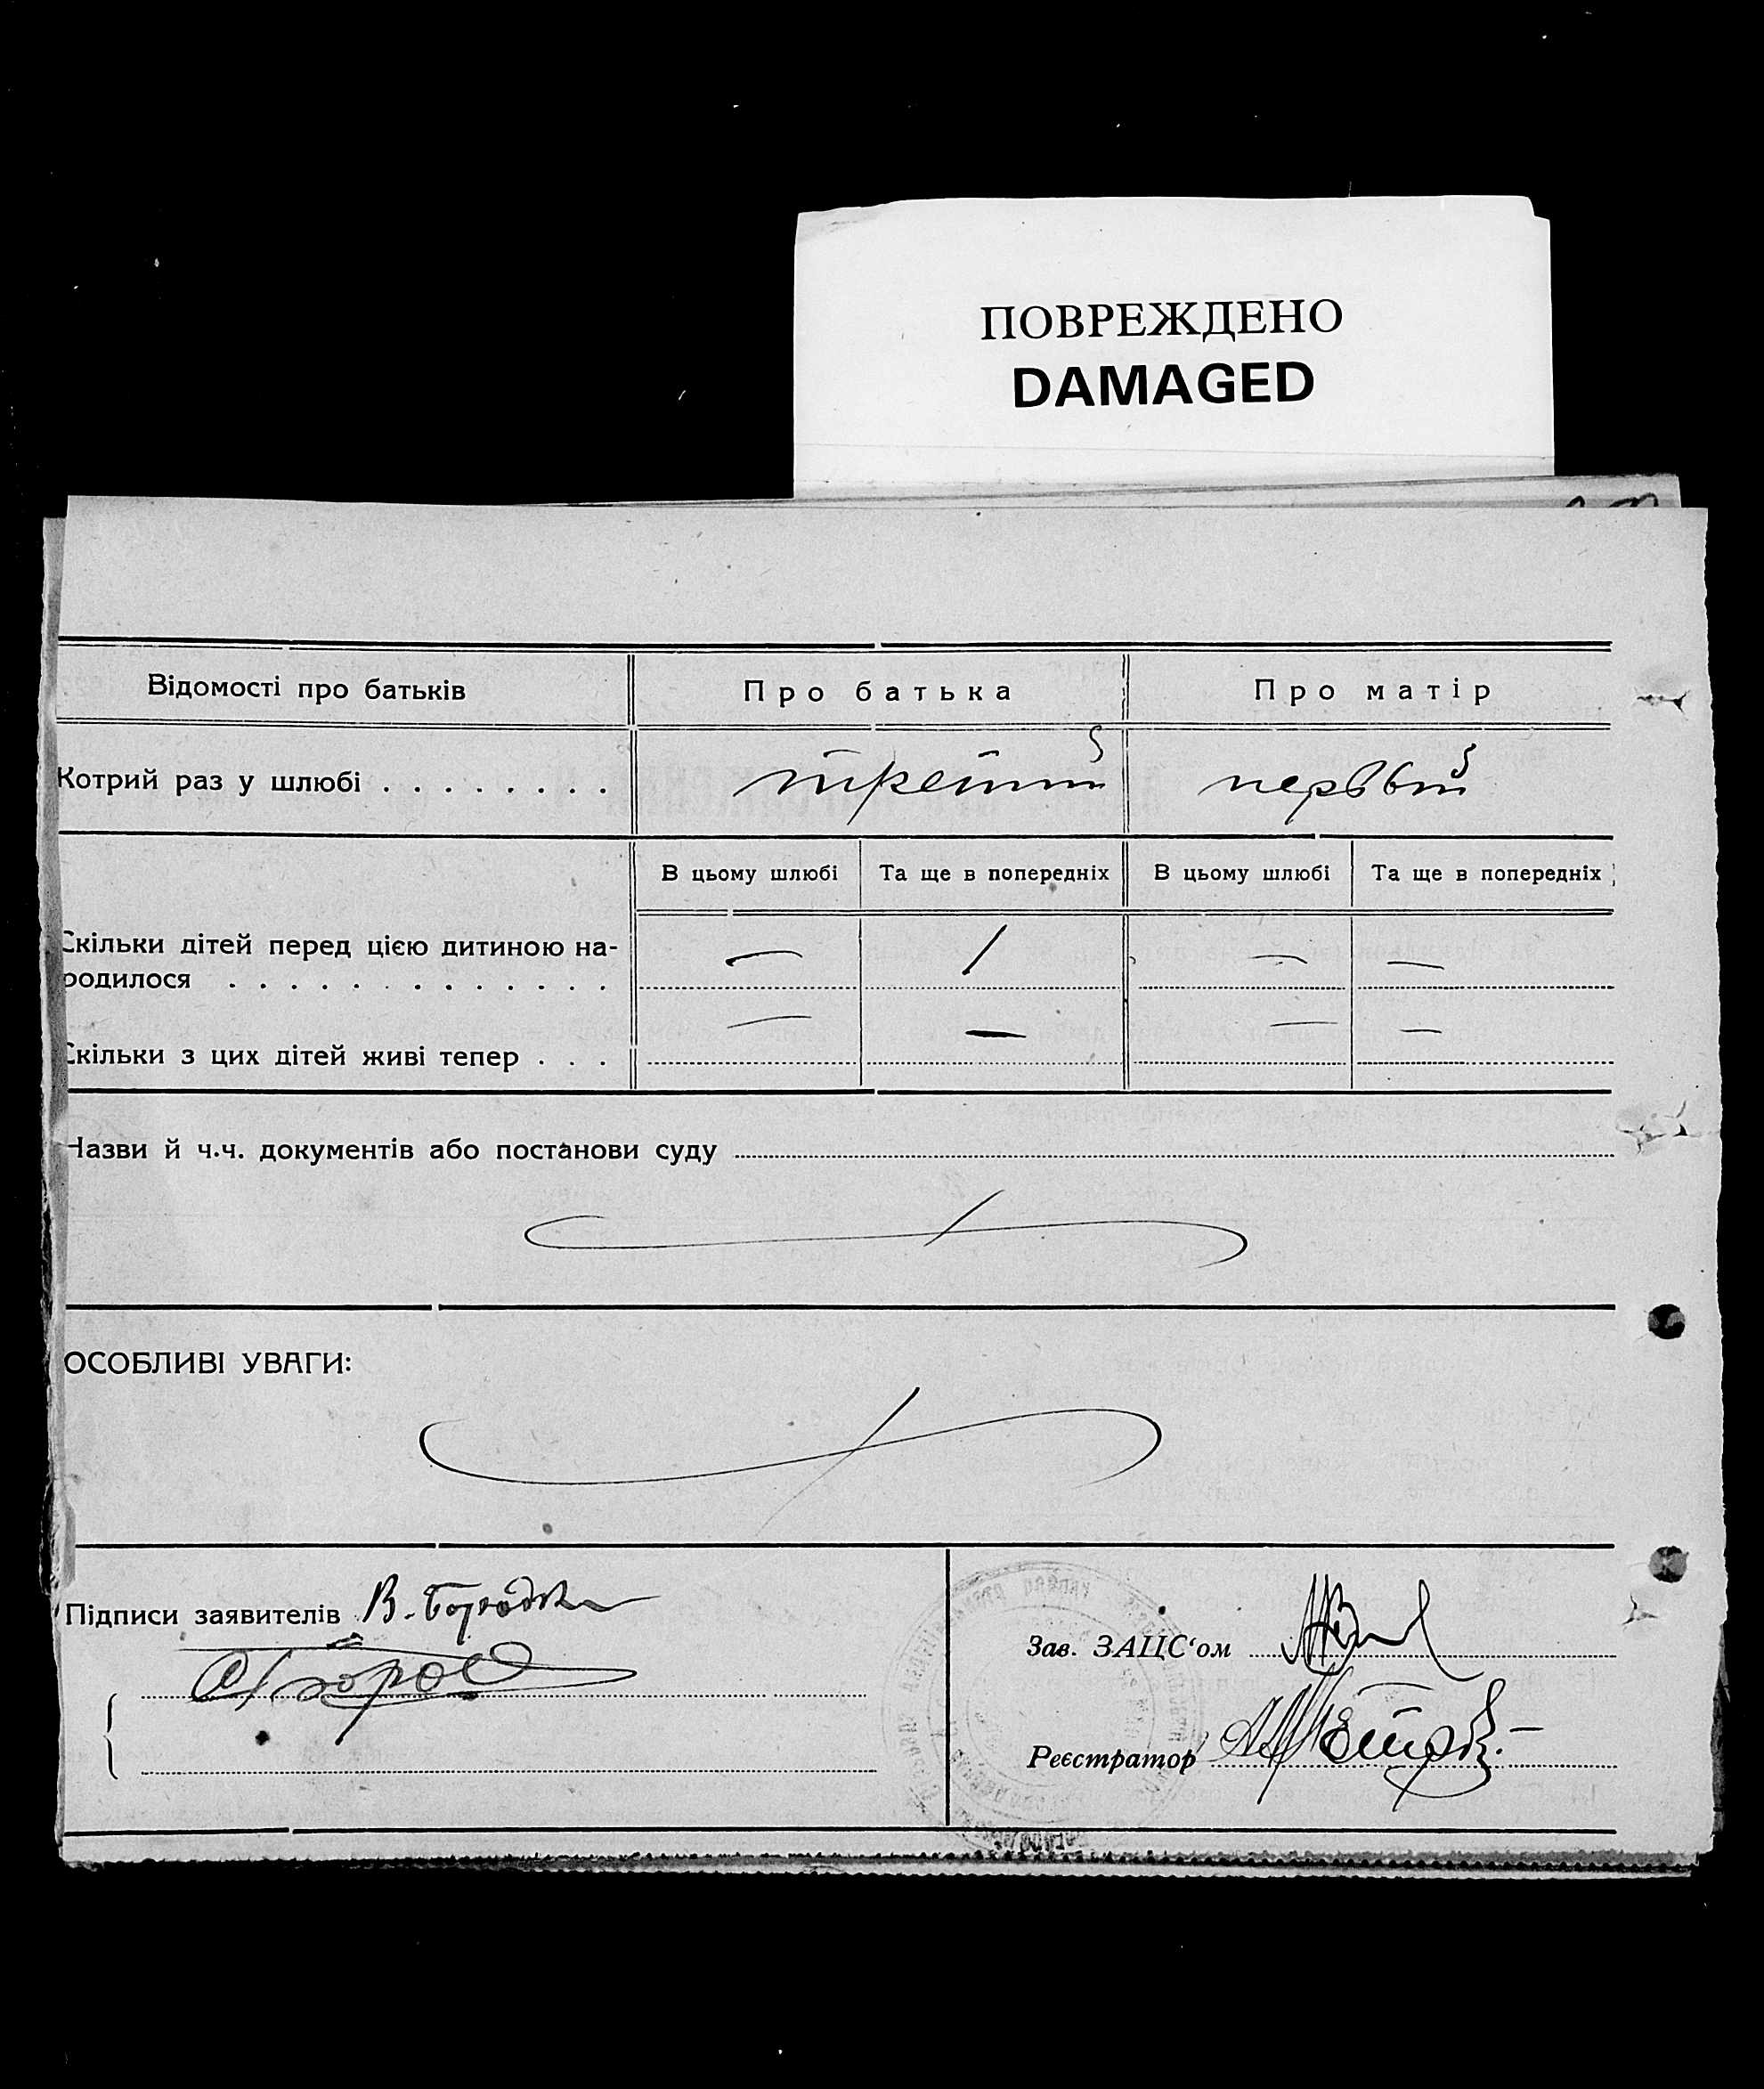 ПОВРЕЖДЕНО
DAMAGED
Відомості про батьків
Про батька
Про матір
Котрий раз у шлюбі . . . . . . . .
третий
первый
В цьому шлюбі
Та ще в попередніх
В цьому шлюбі
Та ще в попередніх
Скільки дітей перед цією дитиною на-
родилося . . . . . . . . . . . . .
— / — —
Скільки з цих дітей живі тепер . . .
— — — —
Назви й ч.ч. документів або постанови суду
ОСОБЛИВІ УВАГИ:
Підписи заявителів В.
Зав. ЗАЦС‘ом
Реєстратор